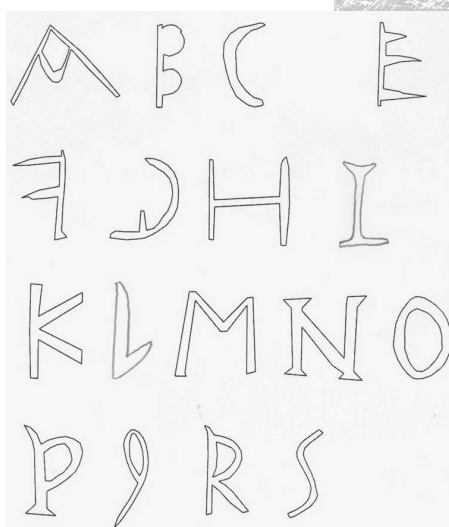 A B C E
F G H I
K L M N O
P Q R S